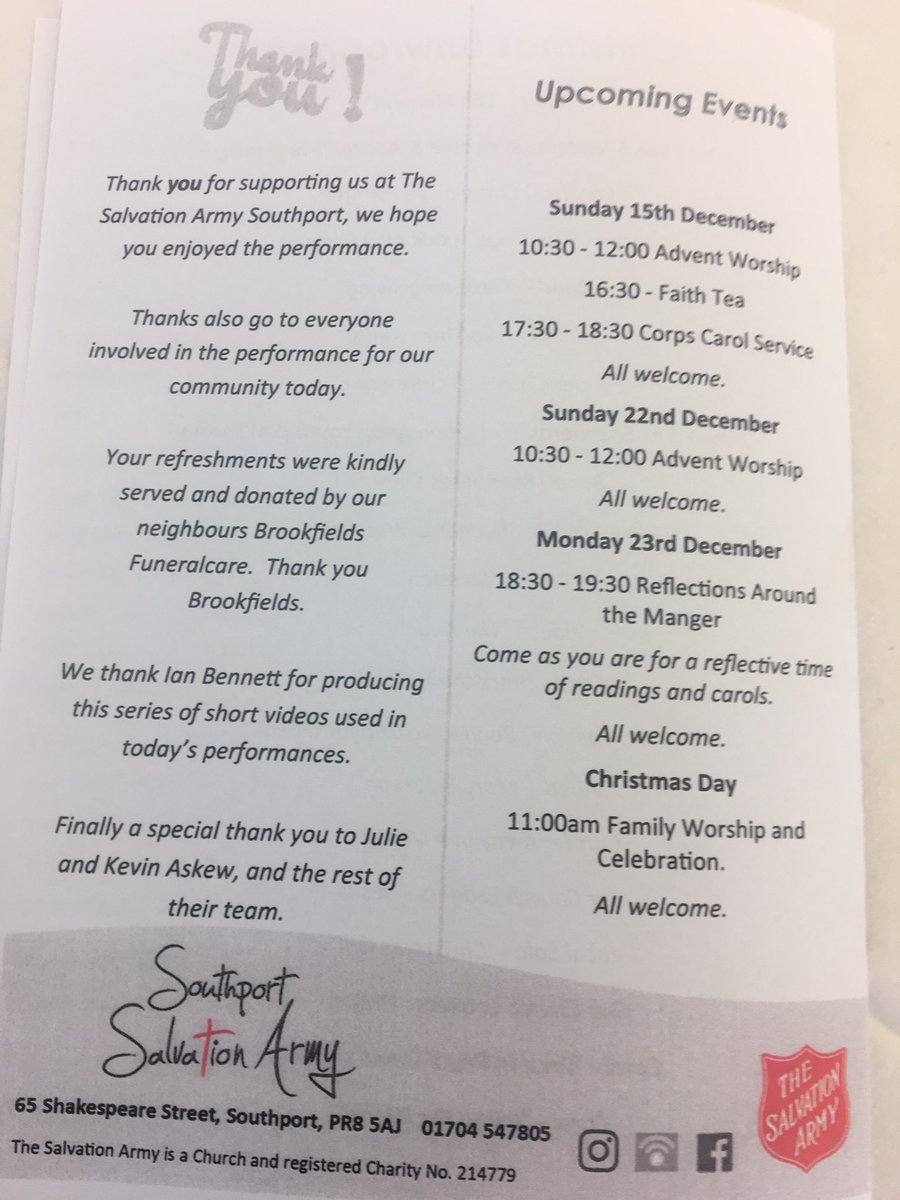 Thank
you!
Thank you for supporting us at The
Salvation Army Southport, we hope
you enjoyed the performance.
Thanks also go to everyone
involved in the performance for our
community today.
Your refreshments were kindly
served and donated by our
neighbours Brookfields
Funeralcare. Thank you
Brookfields.
We thank Ian Bennett for producing
this series of short videos used in
today's performances.
Finally a special thank you to Julie
and Kevin Askew, and the rest of
their team.
Upcoming Events
Sunday 15th December
10:30 - 12:00 Advent Worship
16:30 - Faith Tea
17:30 - 18:30 Corps Carol Service
All welcome.
Sunday 22nd December
10:30 - 12:00 Advent Worship
All welcome.
Monday 23rd December
18:30 - 19:30 Reflections Around
the Manger
Come as you are for a reflective time
of readings and carols.
All welcome.
Christmas Day
11:00am Family Worship and
Celebration.
All welcome.
Southport
Salvation Army
65 Shakespeare Street, Southport, PR8 5AJ 01704 547805
The Salvation Army is a Church and registered Charity No. 214779
THE
SALVATION
ARMY